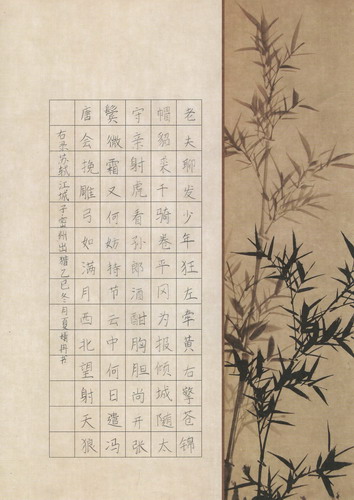 老夫聊发少年狂左牵黄右擎苍锦
帽貂裘千骑卷平冈为报倾城随太
守亲射虎看孙郎酒酣胸胆尚开张
鬓微霜又何妨持节云中何日遣冯
唐会挽雕弓如满月西北望射天狼
右宋苏轼江城子密州出猎乙巳冬月夏